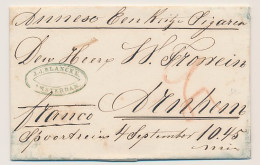 Annexe Een Kistje Sigaren
Den Heer W. Frowein
J. BLANCKE
AMSTERDAM
franco Arnhem
Spoortrein 4 September 10.45
min